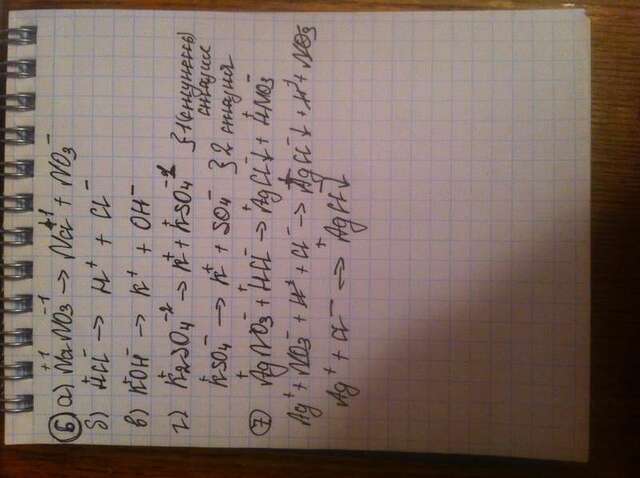 ⑥ а) Na⁺¹NO₃⁻¹ → Na⁺¹ + NO₃⁻
б) H⁺Cl⁻ → H⁺ + Cl⁻
в) K⁺OH⁻ → K⁺ + OH⁻
г) K₂⁺SO₄⁻² → K⁺ + K⁺SO₄⁻² } 1 (ступень) стадия
K⁺SO₄⁻ → K⁺ + SO₄⁻ } 2 стадия
⑦ Ag⁺NO₃⁻ + H⁺Cl⁻ → Ag⁺Cl⁻↓ + H⁺NO₃⁻
Ag⁺ + NO₃⁻ + H⁺ + Cl⁻ → Ag⁺Cl⁻↓ + H⁺ + NO₃⁻
Ag⁺ + Cl⁻ → Ag⁺Cl⁻↓